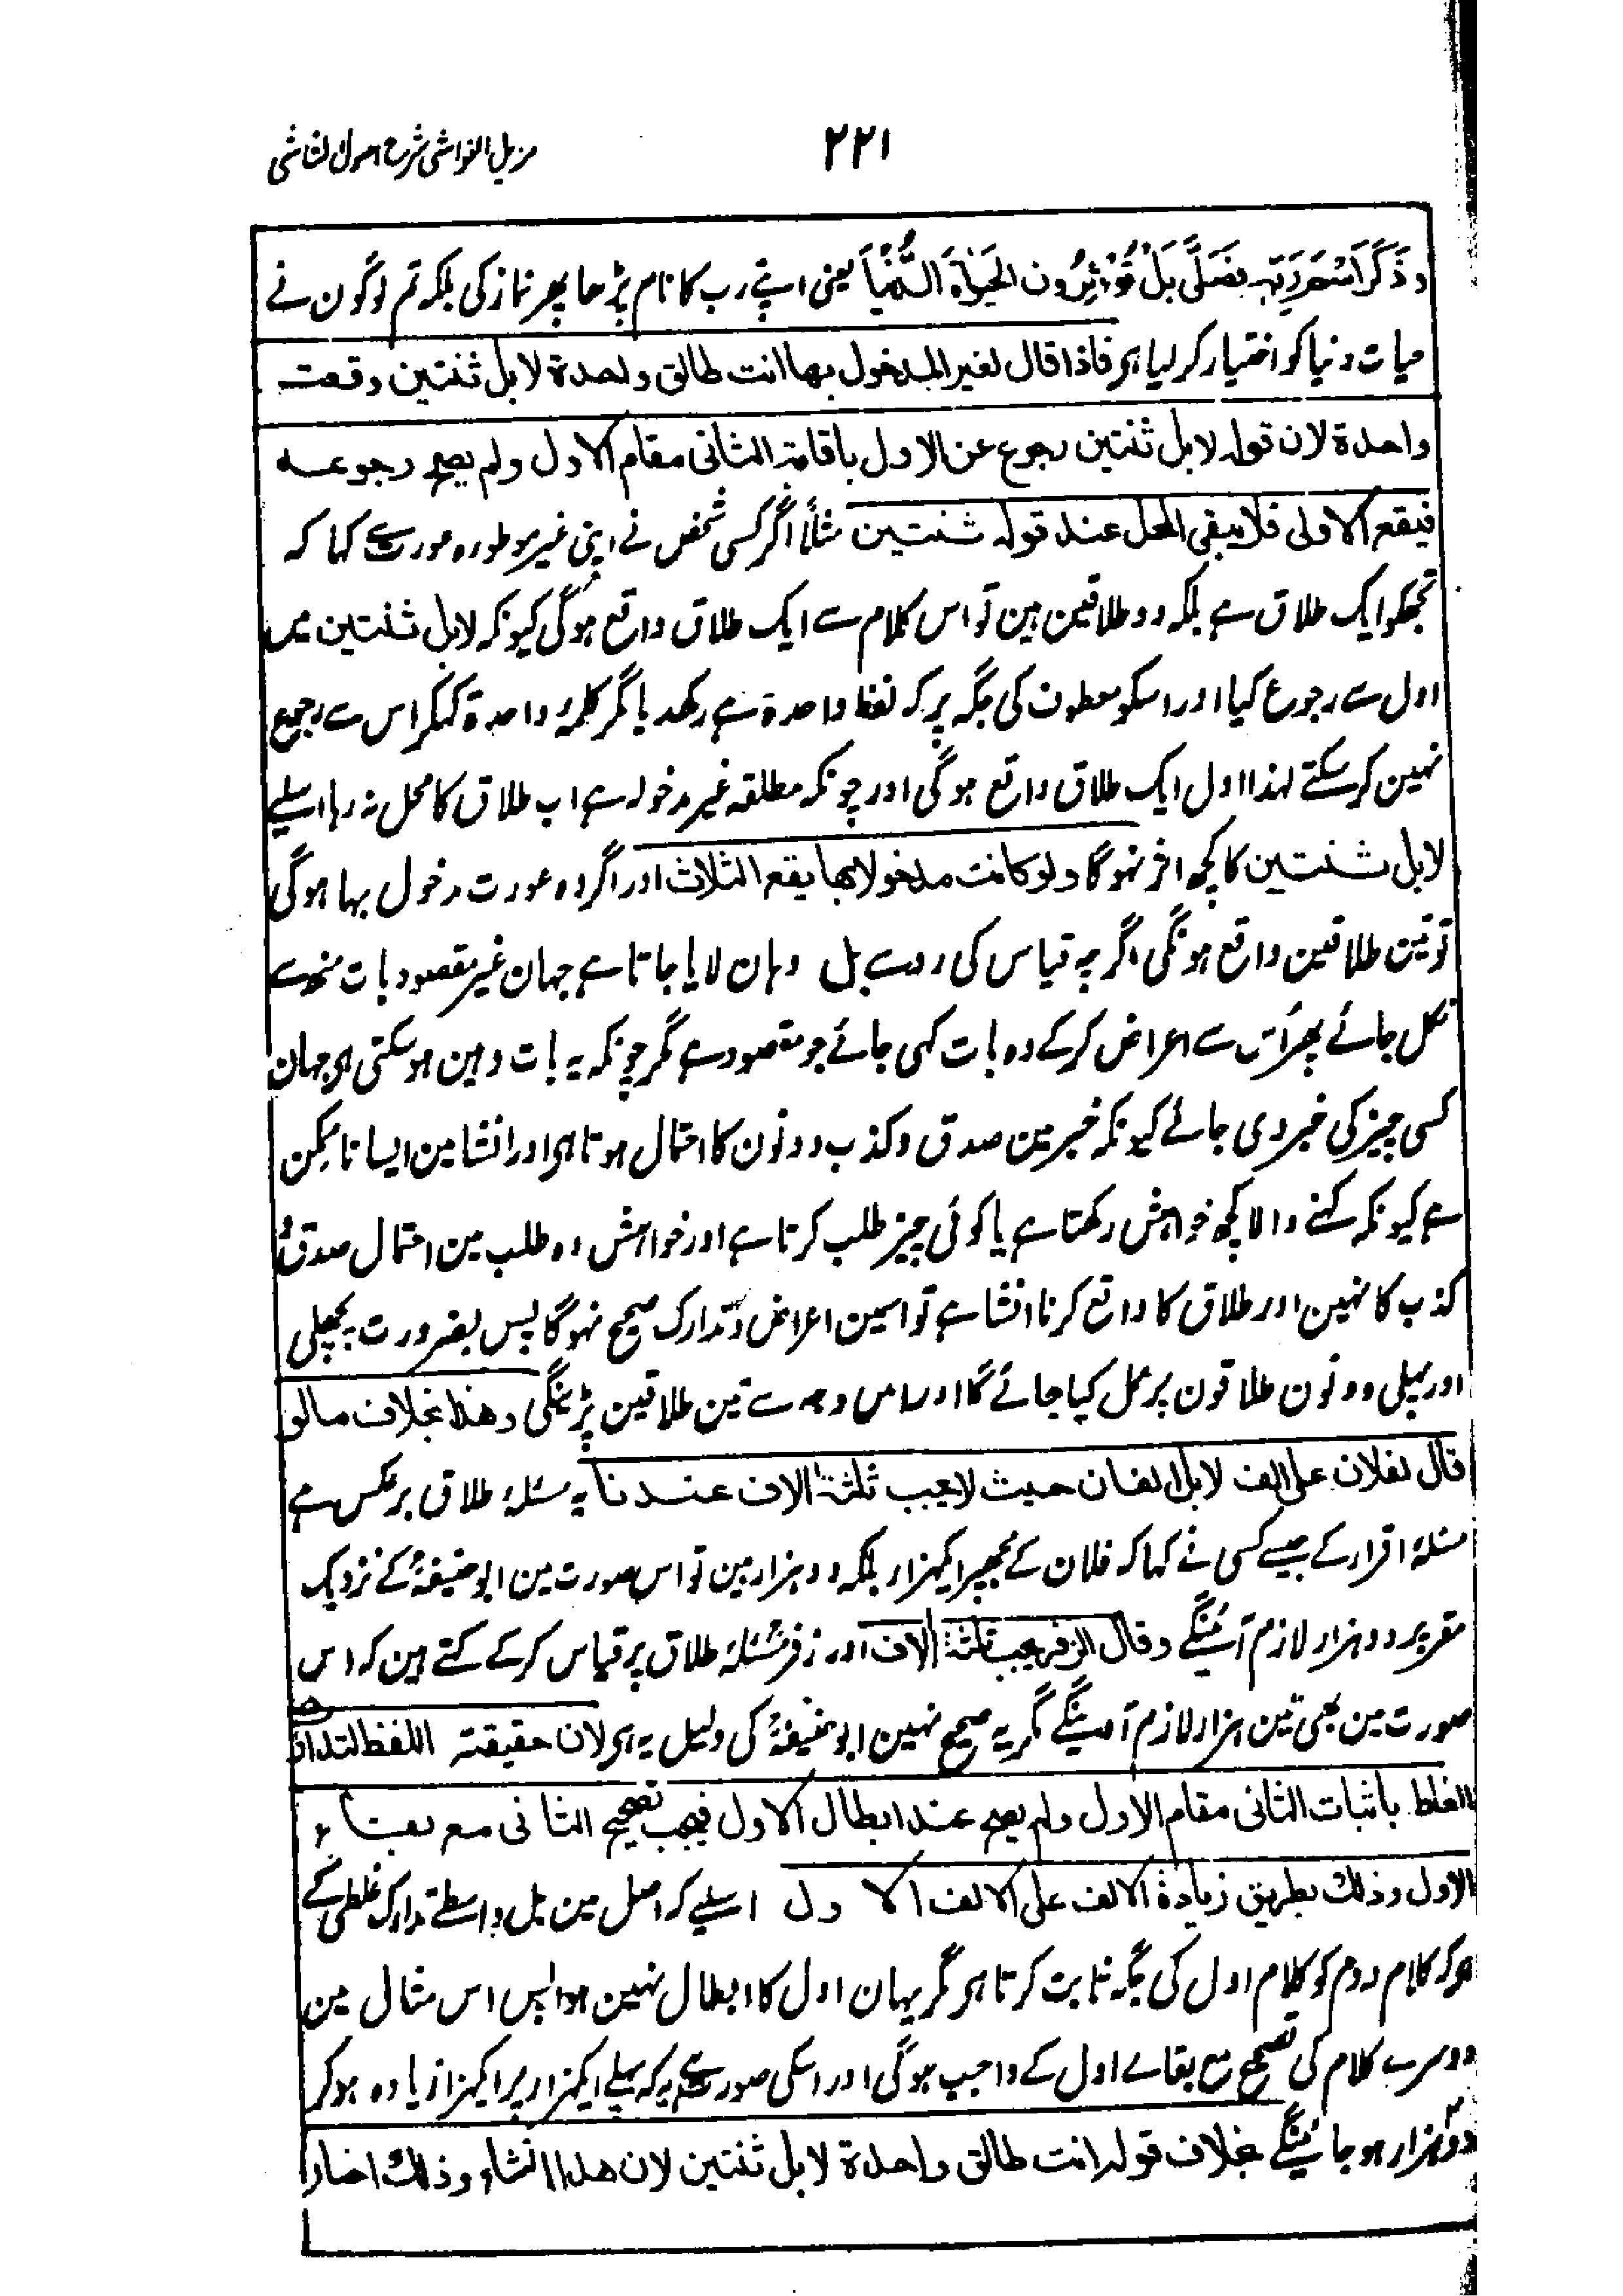 ۲۲۱
مزیل الغواشی شرح اصول الشاشی
وَذَكَرَ اسْمَ رَبِّهٖ فَصَلّٰى بَلْ تُؤْثِرُونَ الْحَيٰوةَ الدُّنْيَا یعنی اپنے رب کا نام پڑھا پھر نماز کی بلکہ تم لوگون نے
حیات دنیا کو اختیار کر لیا ہی فاذا قال لغیر المدخول بها انت طالق واحدة لا بل ثنتین وقعت
واحدة لان قوله لا بل ثنتین رجوع عن الاول باقامة الثانی مقام الاول ولم یصح رجوعه
فیقع الاولی فلا یبقی المحل عند قوله ثنتین مثلاً اگر کسی شخص نے اپنی غیر موطورہ عورت سے کہا کہ
تجھکو ایک طلاق ہے بلکہ دو طلاقین ہین تو اس کلام سے ایک طلاق واقع ہوگی کیونکہ لا بل ثنتین میں
اول سے رجوع کیا اور اسکو معطوف کی جگہ پر کہ لفظ واحدة ہے رکھدیا مگر کلمۂ واحدة کہکر اس سے رجوع
نہین کر سکتے لہذا اول ایک طلاق واقع ہوگی اور چونکہ مطلقہ غیر مدخولہ ہے اب طلاق کا محل نہ رہا اسلیے
لا بل ثنتین کا کچھ اثر نہوگا ولو کانت مدخولا بها یقع الثلاث اور اگر وہ عورت مدخول بہا ہوگی
تو تین طلاقین واقع ہونگی اگرچہ قیاس کی رو سے بل وہان لایا جاتا ہے جہان غیر مقصود بات منھ سے
نکل جائے پھر اُس سے اعراض کرکے وہ بات کہی جائے جو مقصود ہے مگر چونکہ یہ بات وہین ہوسکتی ہی جہان
کسی چیز کی خبر دی جائے کیونکہ خبر مین صدق و کذب دونون کا احتمال ہوتا ہی اور انشا مین ایسا ناممکن
ہے کیونکہ کہنے والا کچھ خواہش رکھتا ہے یا کوئی چیز طلب کرتا ہے اور خواہش وہ طلب مین احتمال صدق و
کذب کا نہین اور طلاق کا واقع کرنا انشا ہے تو اسمین اعراض و تدارک صحیح نہوگا پس بضرورت پچھلی
اور پہلی دونون طلاقون پر عمل کیا جائے گا اور اس وجہ سے تین طلاقین پڑینگی وهذا بخلاف ما لو
قال لفلان علی الف لا بل الفان حیث لا یجب ثلثة الاف عندنا یہ مسئلۂ طلاق برعکس ہے
مسئلۂ اقرار کے جیسے کسی نے کہا کہ فلان کے مجھپر ایکہزار بلکہ دو ہزار ہین تو اس صورت مین ابو حنیفہؒ کے نزدیک
مقر پر دو ہزار لازم آئینگے وقال الزفر یجب ثلثة الاف اور زفر مسئلۂ طلاق پر قیاس کرکے کہتے ہین کہ اس
صورت مین بھی تین ہزار لازم آئینگے مگر یہ صحیح نہین ابو حنیفہؒ کی دلیل یہ ہی لان حقیقة اللفظ لتدارك
الغلط باثبات الثانی مقام الاول ولم یصح عند ابطال الاول فیجب تصحیح الثانی مع بقاء
الاول وذلك بطریق زیادة الالف علی الالف الاول اسلیے کہ اصل مین بل واسطے تدارک غلطی کے
ہو کہ کلام دوم کو کلام اول کی جگہ ثابت کرتا ہی مگر یہان اول کا ابطال نہین ہوا پس اس مثال مین
دوسرے کلام کی تصحیح مع بقاے اول کے واجب ہوگی اور اسکی صورت ہے یہ کہ پہلے ایکہزار پر ایکہزار زیادہ ہوکر
دو ہزار ہو جائینگے بخلاف قوله انت طالق واحدة لا بل ثنتین لان هذا انشاء وذلك اخبار